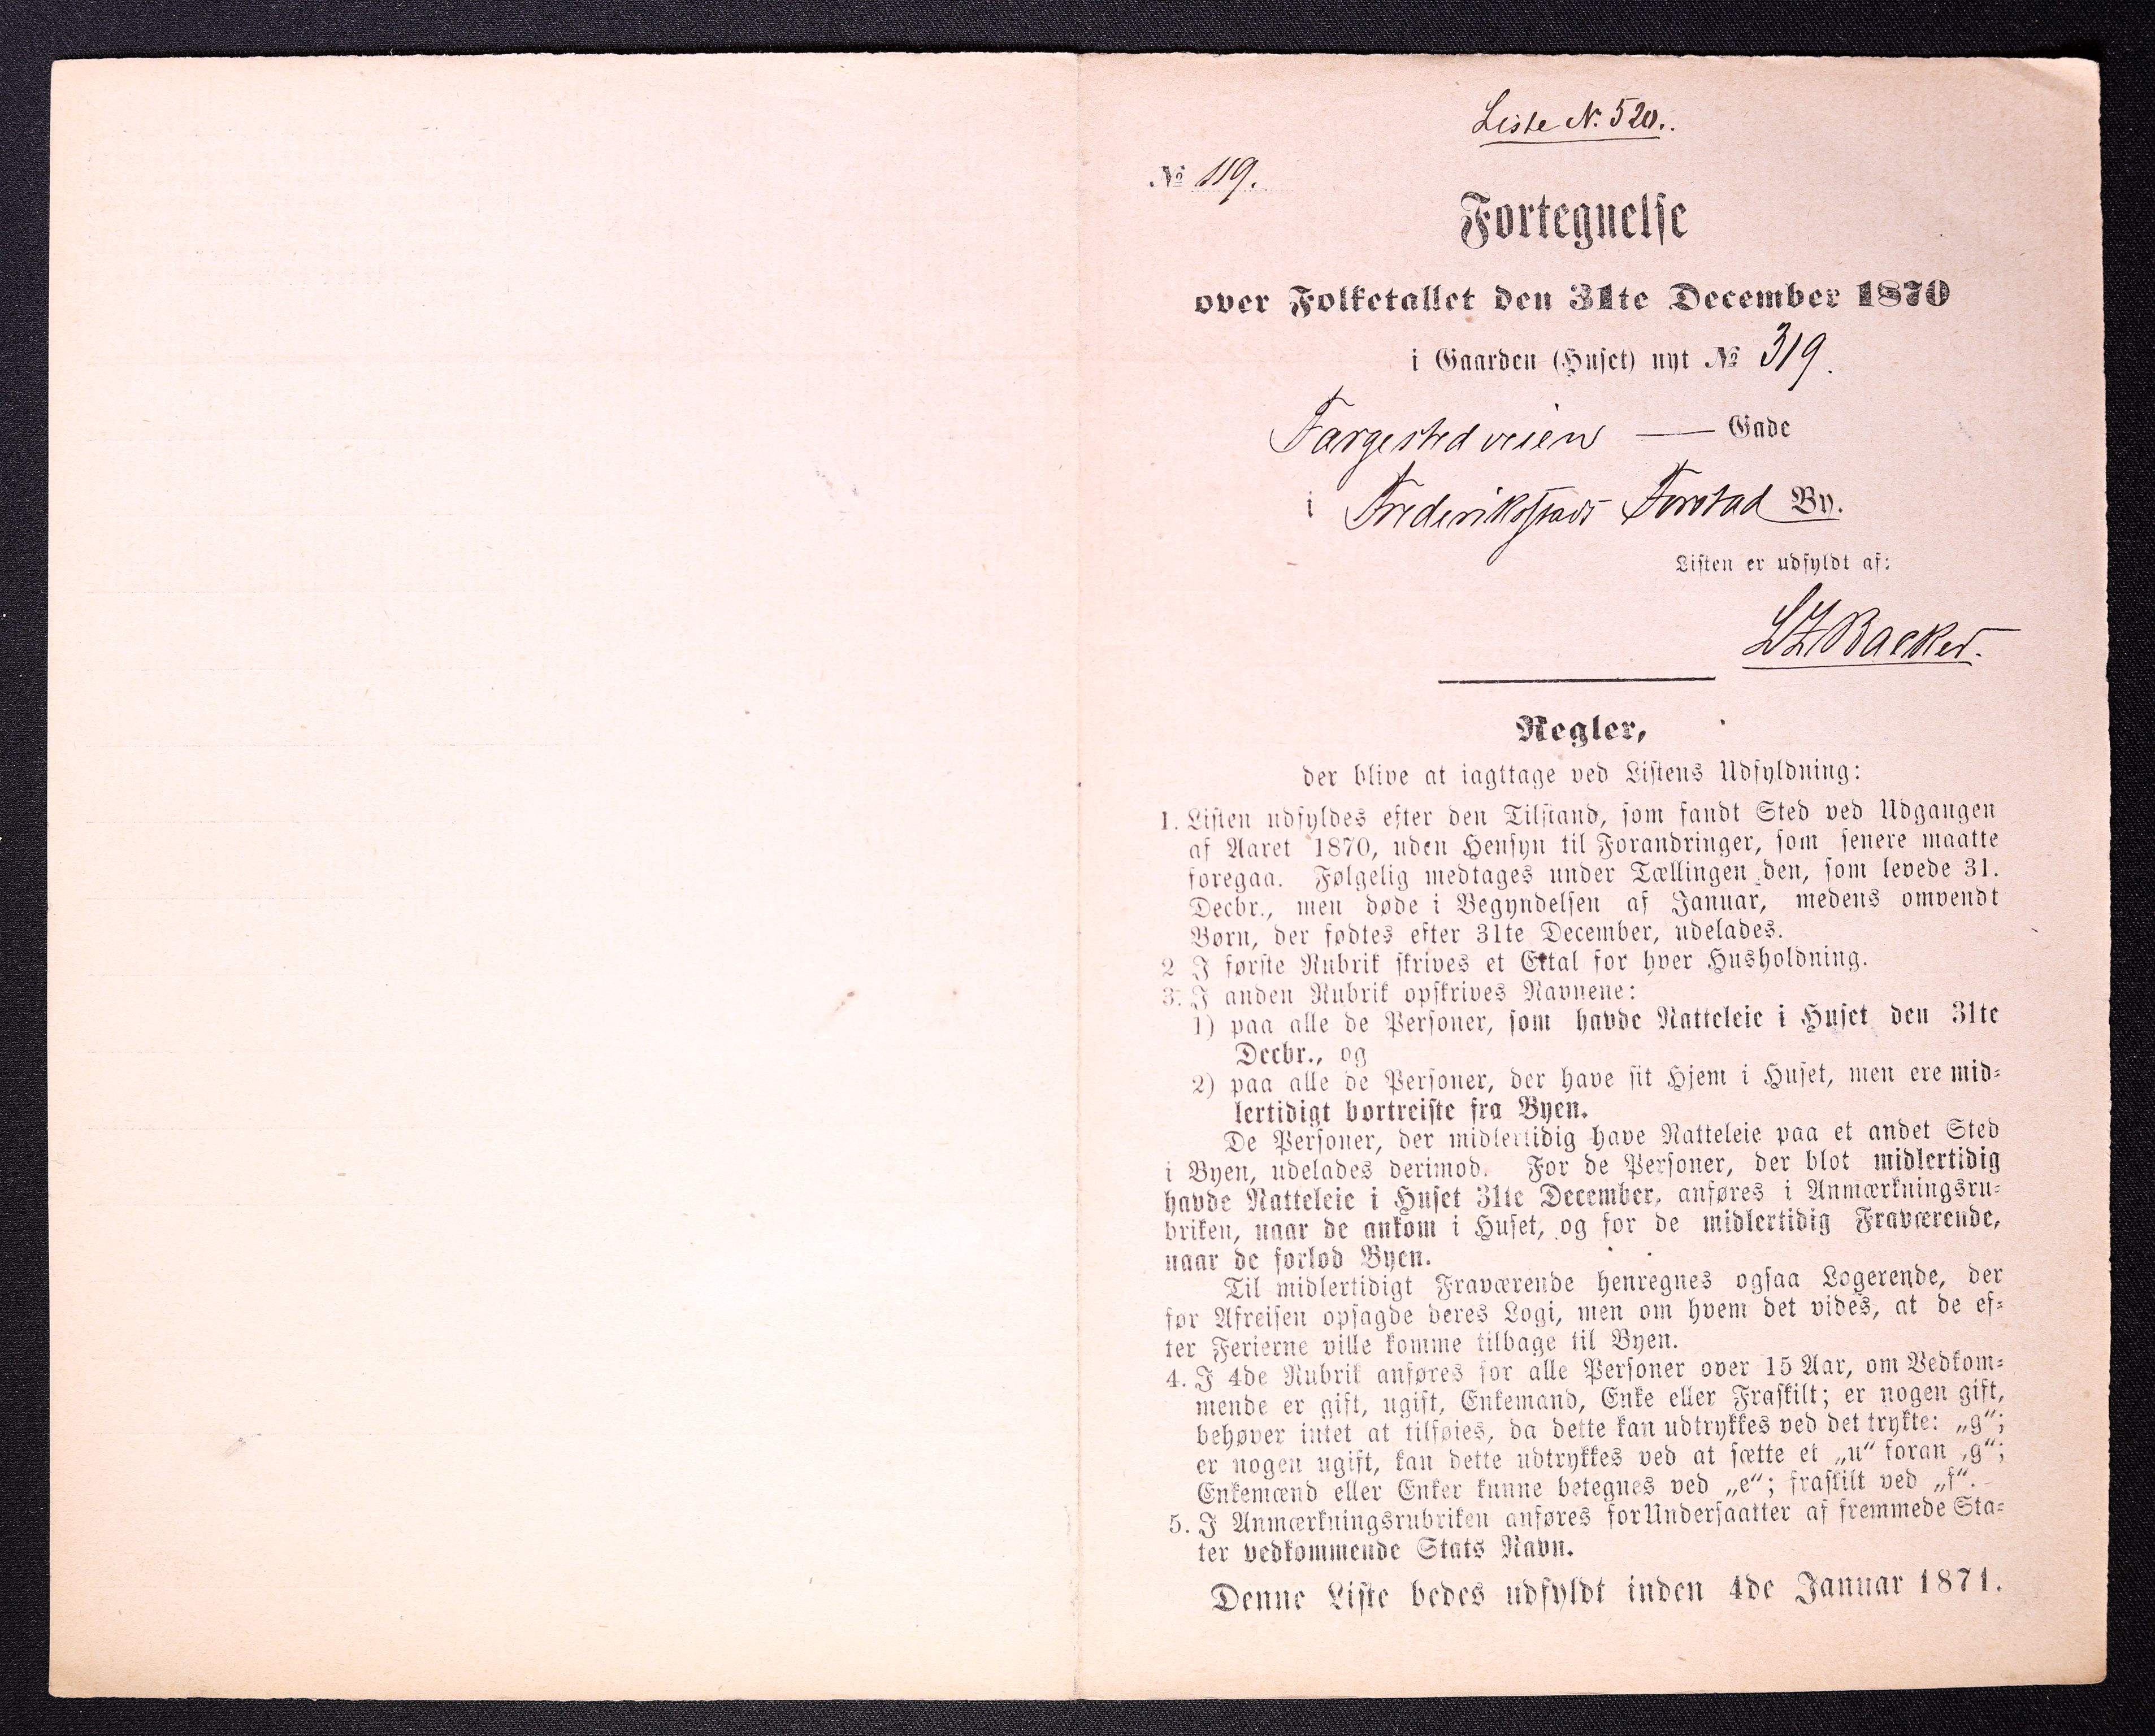 Liste N. 520.
№ 119.
Fortegnelse
over Folketallet den 31te December 1870
i Gaarden (Huset) nyt № 319.
Fargestedveien — Gade
i Frederiksstads Forstad By.
Listen er udfyldt af:
Backer.
Regler,
der blive at iagttage ved Listens Udfyldning:
1. Listen udfyldes efter den Tilstand, som fandt Sted ved Udgangen
af Aaret 1870, uden Hensyn til Forandringer, som senere maatte
foregaa. Følgelig medtages under Tællingen den, som levede 31.
Decbr., men døde i Begyndelsen af Januar, medens omvendt
Børn, der fødtes efter 31te December, udelades.
2 I første Rubrik skrives et Ettal for hver Husholdning.
3. I anden Rubrik opskrives Navnene:
1) paa alle de Personer, som havde Natteleie i Huset den 31te
Decbr., og
2) paa alle de Personer, der have sit Hjem i Huset, men ere mid-
lertidigt bortreiste fra Byen.
De Personer, der midlertidig have Natteleie paa et andet Sted
i Byen, udelades derimod. For de Personer, der blot midlertidig
havde Natteleie i Huset 31te December, anføres i Anmærkningsru-
briken, naar de ankom i Huset, og for de midlertidig Fraværende,
naar de forlod Byen.
Til midlertidigt Fraværende henregnes ogsaa Logerende, der
før Afreisen opsagde deres Logi, men om hvem det vides, at de ef-
ter Ferierne ville komme tilbage til Byen.
4. I 4de Rubrik anføres for alle Personer over 15 Aar, om Vedkom-
mende er gift, ugift, Enkemand, Enke eller Fraskilt; er nogen gift,
behøver intet at tilføies, da dette kan udtrykkes ved det trykte: „g“;
er nogen ugift, kan dette udtrykkes ved at sætte et „u“ foran „g“;
Enkemænd eller Enker kunne betegnes ved „e“; fraskilt ved „f“.
5. I Anmærkningsrubriken anføres for Undersaatter af fremmede Sta-
ter vedkommende Stats Navn.
Denne Liste bedes udfyldt inden 4de Januar 1871.